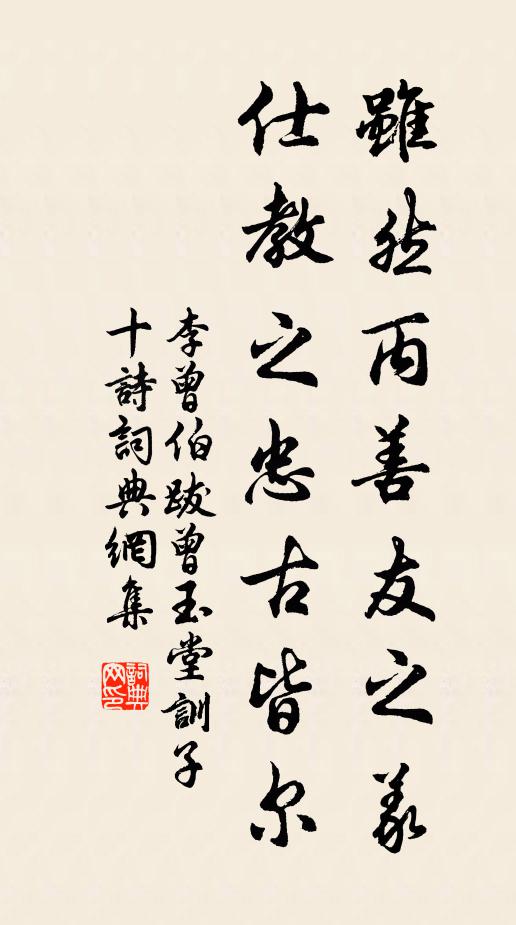 雖然丙善友之義
仕教之忠古皆尔
李曾伯跋曾玉堂訓子
十詩詞典網集
詞典
网印